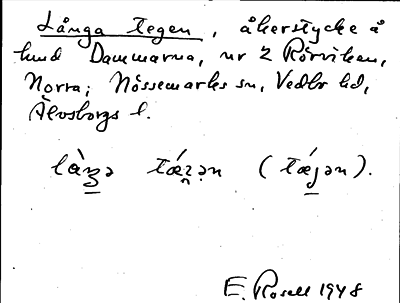 Långa tegen, åkerstycke å
hmd Dammarna, nr 2 Rörviken,
Norra; Nössemarks sn, Vedbo hd,
Älvsborgs l.
làŋə tǽʒən (tǽjən).
E. Rosell 1948